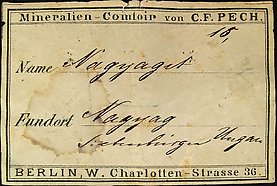 Mineralien-Comtoir von C.F. PECH.
15.
Name Nagyagit
Fundort Nagyag
Siebenbürgen Ungarn
BERLIN, W. Charlotten-Strasse 36.